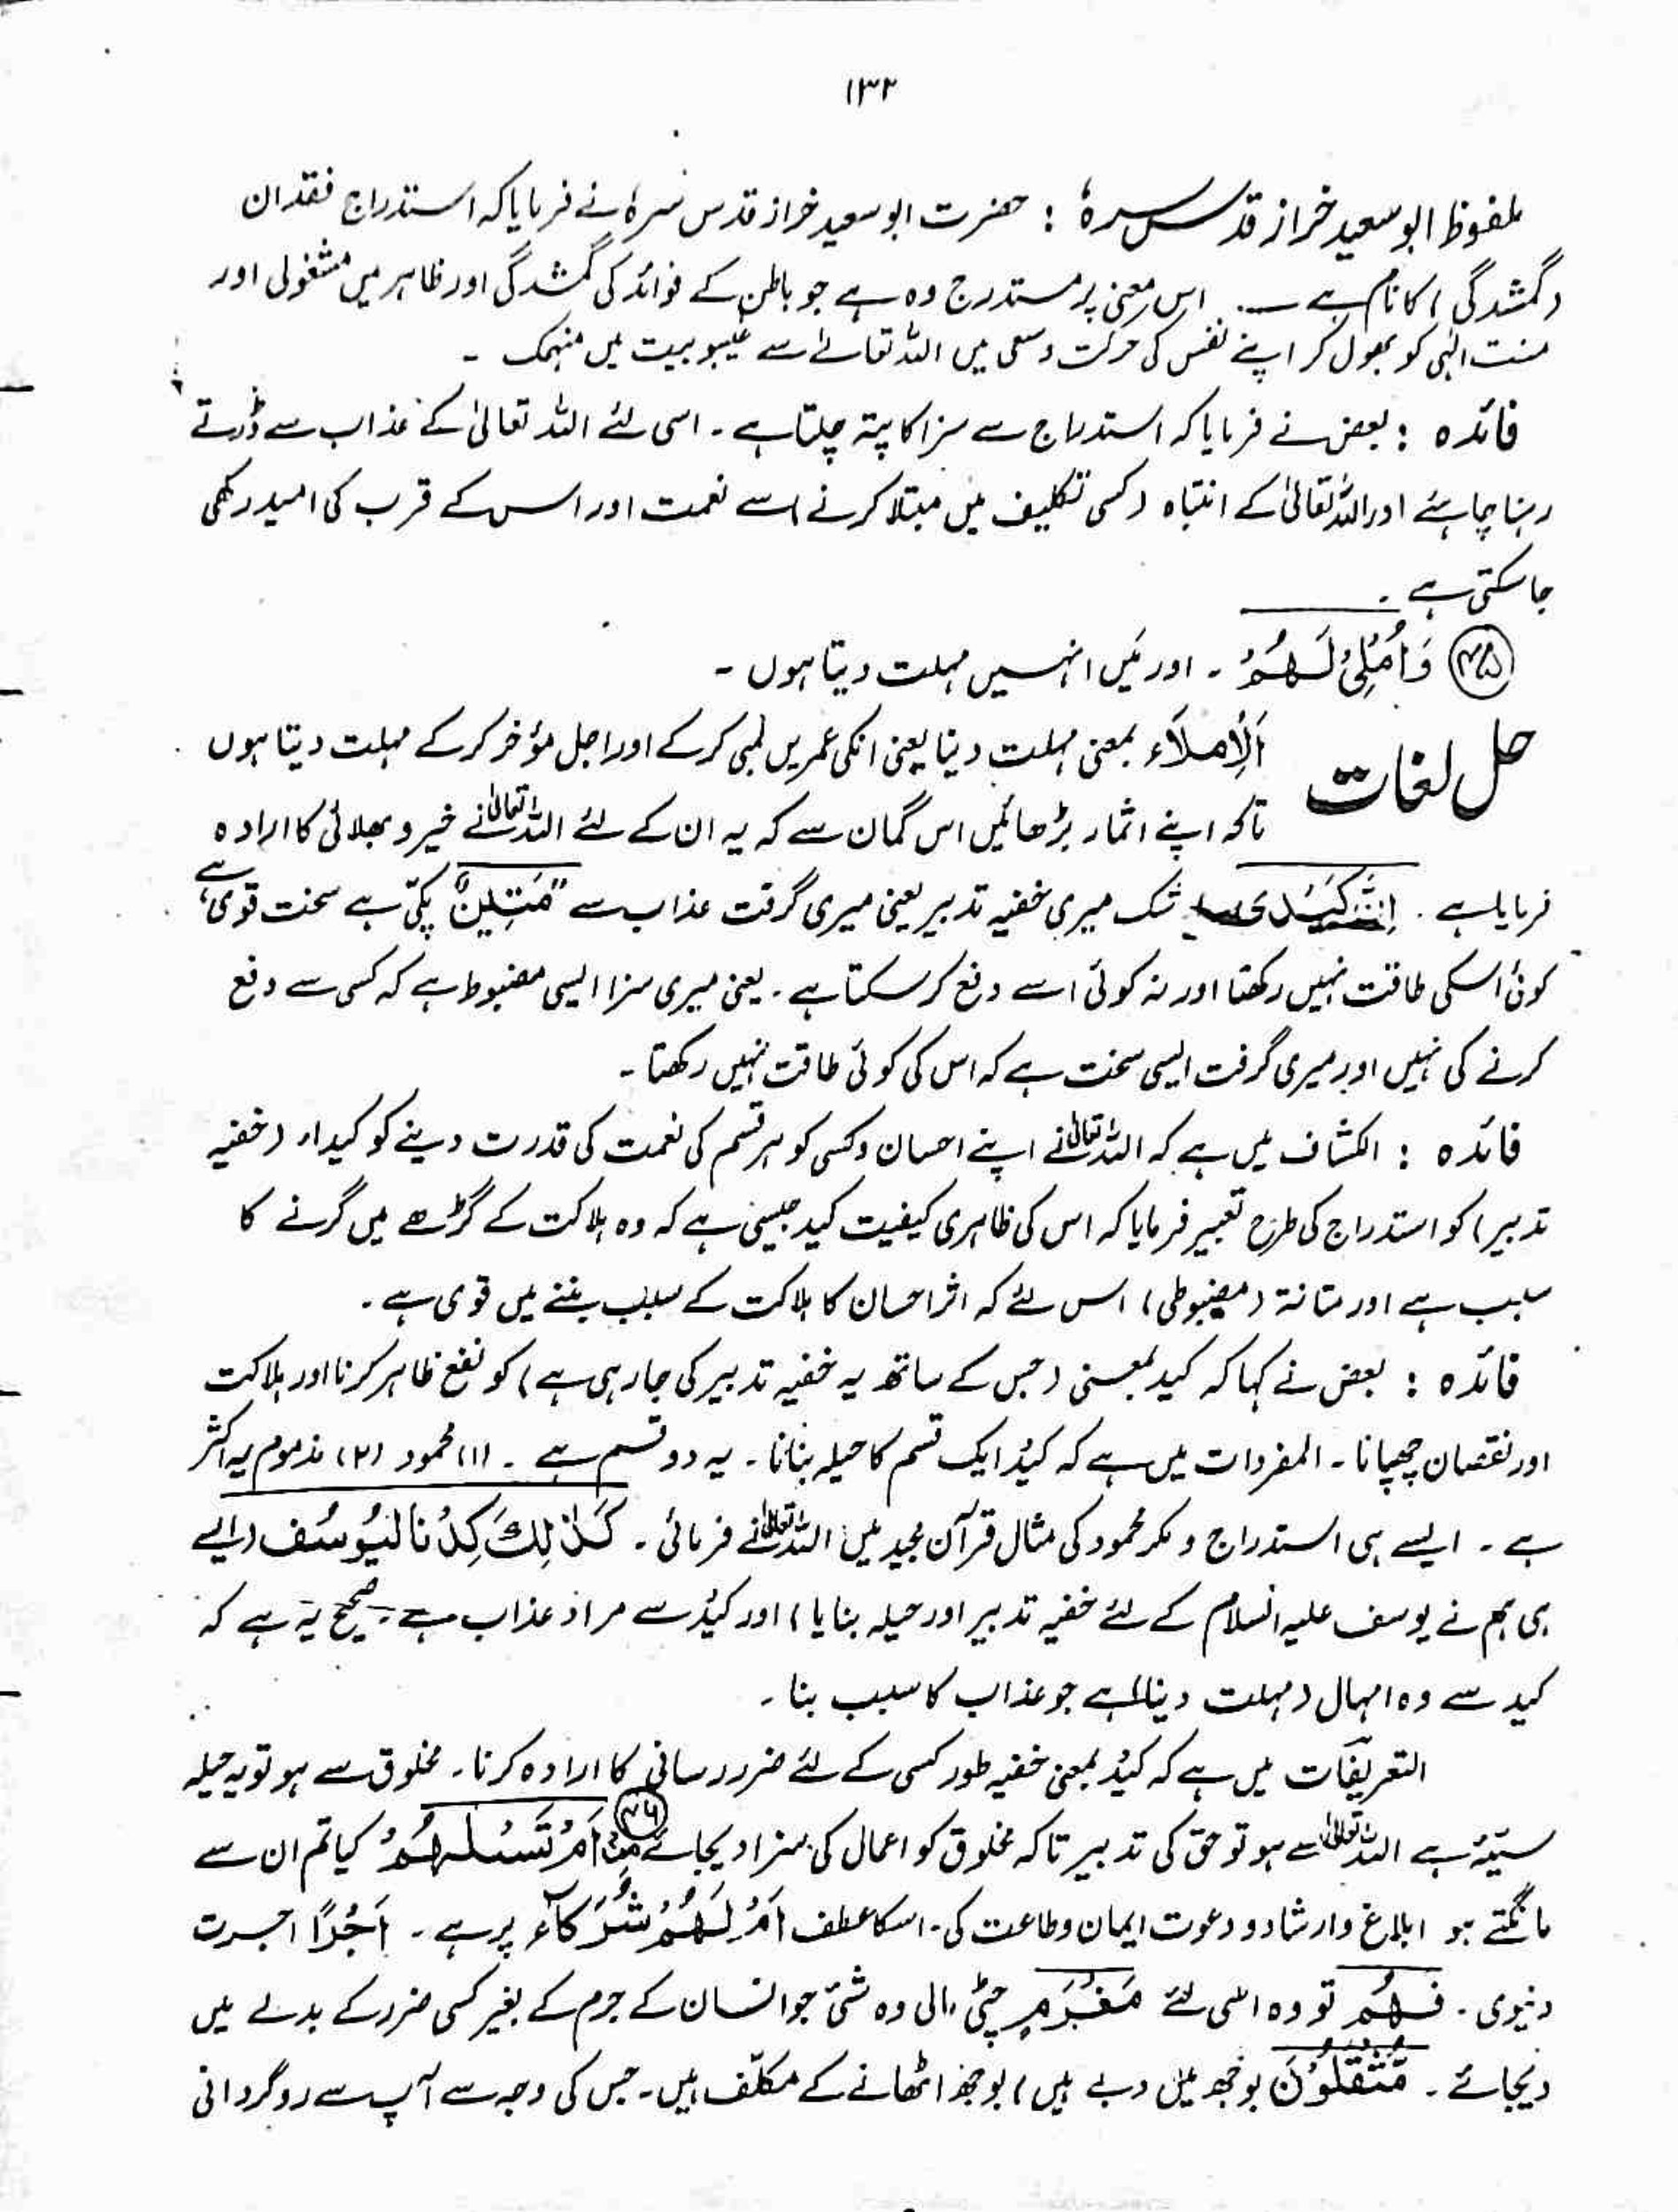 ۱۳۲
ملفوظ ابوسعید خراز قدس سرہٗ : حضرت ابوسعید خراز قدس سرہٗ نے فرمایا کہ استدراج فقدان
(گمشدگی) کا نام ہے ــ اس معنیٰ پر مستدرج وہ ہے جو باطن کے فوائد کی گمشدگی اور ظاہر میں مشغولی اور
منت الٰہی کو بھول کر اپنے نفس کی حرکت و سعی میں اللہ تعالےٰ سے غیبوبیت میں منہمک ۔
فائدہ : بعض نے فرمایا کہ استدراج سے سزا کا پتہ چلتا ہے ۔ اسی لئے اللہ تعالیٰ کے عذاب سے ڈرتے
رہنا چاہئے اور اللہ تعالیٰ کے انتباہ (کسی تکلیف میں مبتلا کرنے) سے نعمت اور اس کے قرب کی امید رکھی
جاسکتی ہے ۔
(۴۵) وَاُمْلِیْ لَهُمْ ۔ اور مَیں انہیں مہلت دیتا ہوں ۔
حل لغات
اَلْاِملاَء بمعنی مہلت دینا یعنی انکی عمریں لمبی کرکے اور اجل مؤخر کرکے مہلت دیتا ہوں
تاکہ اپنے اثمار بڑھائیں اس گمان سے کہ یہ ان کے لئے اللہ تعالیٰ نے خیر و بھلائی کا ارادہ
فرمایا ہے ۔ اِنَّ كَیْدِیْ بے شک میری خفیہ تدبیر یعنی میری گرفت عذاب سے "مَتِیْنٌ" پکّی ہے سخت قوی ہے
کوئی اسکی طاقت نہیں رکھتا اور نہ کوئی اسے دفع کر سکتا ہے ۔ یعنی میری سزا ایسی مضبوط ہے کہ کسی سے دفع
کرنے کی نہیں اور میری گرفت ایسی سخت ہے کہ اس کی کوئی طاقت نہیں رکھتا ۔
فائدہ : الکشاف میں ہے کہ اللہ تعالیٰ نے اپنے احسان و کسی کو ہر قسم کی نعمت کی قدرت دینے کو کیداء (خفیہ
تدبیر) کو استدراج کی طرح تعبیر فرمایا کہ اس کی ظاہری کیفیت کید جیسی ہے کہ وہ ہلاکت کے گڑھے میں گرنے کا
سبب ہے اور متانۃ (مضبوطی) اس لئے کہ اثر احسان کا ہلاکت کے سبب بننے میں قوی ہے ۔
فائدہ : بعض نے کہا کہ کید بمعنی (جس کے ساتھ یہ خفیہ تدبیر کی جارہی ہے) کو نفع ظاہر کرنا اور ہلاکت
اور نقصان چھپانا ۔ المفردات میں ہے کہ کیدٌ ایک قسم کا حیلہ بنانا ۔ یہ دو قسم ہے ۔ (۱) محمود (۲) مذموم یہ اکثر
ہے ۔ ایسے ہی استدراج و مکر محمود کی مثال قرآن مجید میں اللہ تعالیٰ نے فرمائی ۔ كَذٰلِكَ كِدْنَا لِیُوْسُفَ (ایسے
ہی ہم نے یوسف علیہ السلام کے لئے خفیہ تدبیر اور حیلہ بنایا) اور کیدٌ سے مراد عذاب ہے ۔ صحیح یہ ہے کہ
کید سے وہ امہال (مہلت دینا) ہے جو عذاب کا سبب بنا ۔
التعریفات میں ہے کہ کیدٌ بمعنی خفیہ طور کسی کے لئے ضرر رسانی کا ارادہ کرنا ۔ مخلوق سے ہو تو یہ حیلہ
سیئہ ہے اللہ تعالیٰ سے ہو تو حق کی تدبیر تاکہ مخلوق کو اعمال کی سزا دیجائے (۴۶) اَمْ تَسْئَلُهُمْ کیا تم ان سے
مانگتے ہو ابلاغ و ارشاد و دعوت ایمان و طاعت کی ۔ اسکا عطف اَمْ لَهُمْ شُرَكَآءُ پر ہے ۔ اَجْرًا اجرت
دنیوی ۔ فَهُمْ تو وہ اسی لئے مَغْرَمٍ چٹّی مالی وہ شئ جو انسان کے جرم کے بغیر کسی ضرر کے بدلے میں
دیجائے ۔ مُثْقَلُوْنَ بوجھ میں دبے ہیں) بوجھ اٹھانے کے مکلّف ہیں ۔ جس کی وجہ سے آپ سے روگردانی